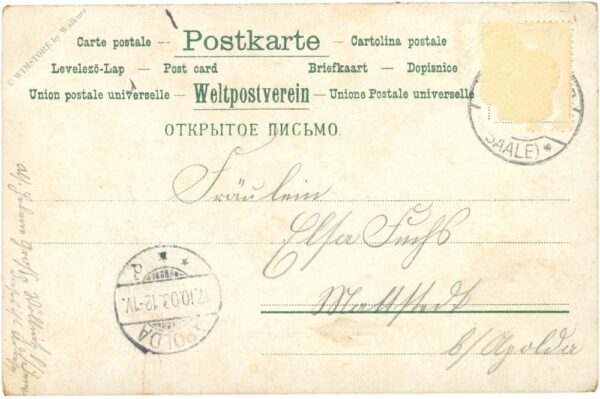 © WIMSTORE by Walkner
Carte postale — Postkarte — Cartolina postale
Levelező-Lap — Post card Briefkaart — Dopisnice
Union postale universelle — Weltpostverein — Unione Postale universelle
ОТКРЫТОЕ ПИСЬМО.
(SAALE) *
Fräulein
Elsa Fuchs
Mattstedt
b/Apolda
7.10.03.12-1V.
APOLDA